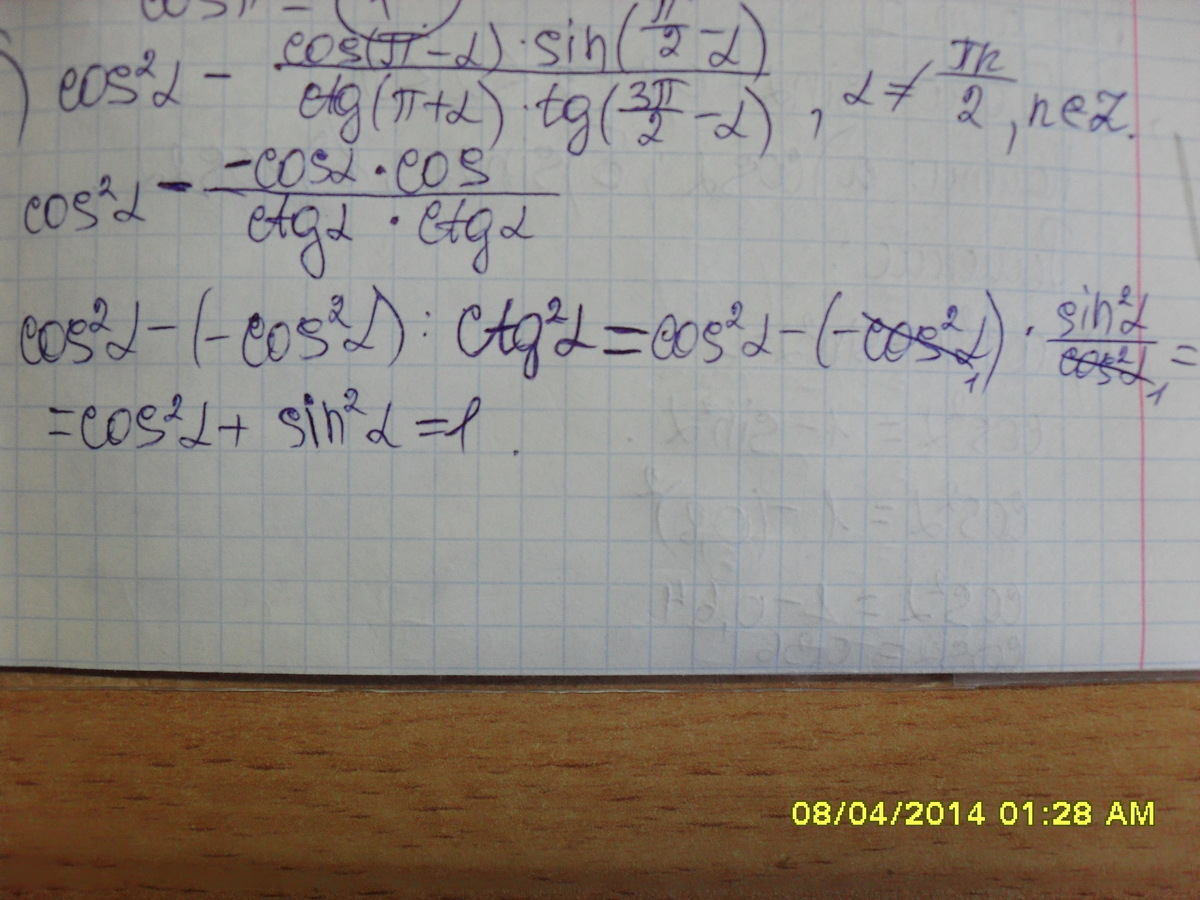 cos²α - cos(π-α)·sin(π/2-α) / ctg(π+α)·tg(3π/2-α), α≠πn/2, n∈Z.
cos²α - -cosα·cos / ctgα·ctgα
cos²α-(-cos²α):ctg²α=cos²α-(-cos²α)₁·sin²α/cos²α₁=
=cos²α+sin²α=1.
08/04/2014 01:28 AM